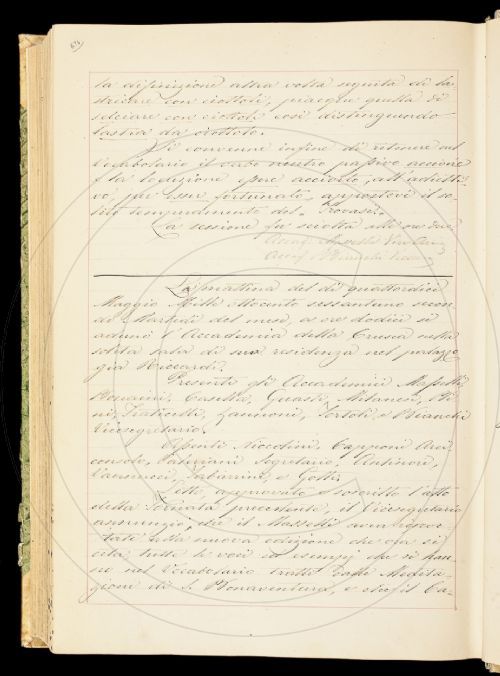 la definizione altra volta seguita di la-
stricare con ciottoli, piacque quella di
selciare con ciottoli così distinguendo
lastra da ciottolo.
Si convenne infine di ritenere nel
Vocabolario il verbo neutro passivo
e la locuzione
vo, per esser fortunato, appostovi il so-
lito temperamento del
La sessione fu sciolta alle ore due.
La mattina del dì quattordici
Maggio Mille ottocento sessantuno secon-
do Martedì del mese, a ore dodici si
adunò l'Accademia della Crusca nella
solita sala di sua residenza nel palazzo
già Riccardi.
Presenti gli Accademici Masselli
Bonaini, Casella, Guasti, Milanesi,
Fraticelli, Zannoni, Tortoli, e Bianchi
Vicesegretario.
Assenti Niccolini, Capponi Arci-
consolo, Segretario, Antinori,
Vannucci, Tabarrini, e Gotti.
Letto, approvato e soscritto l'atto
della tornata precedente, il Vicesegretario
annunziò, che il Masselli aveva
alla nuova edizione che ora si
cita, tutte le voci ed esempj che si han-
no nel Vocabolario tratti dalle Medita-
zioni di S. Bonaventura, e che il Ca-